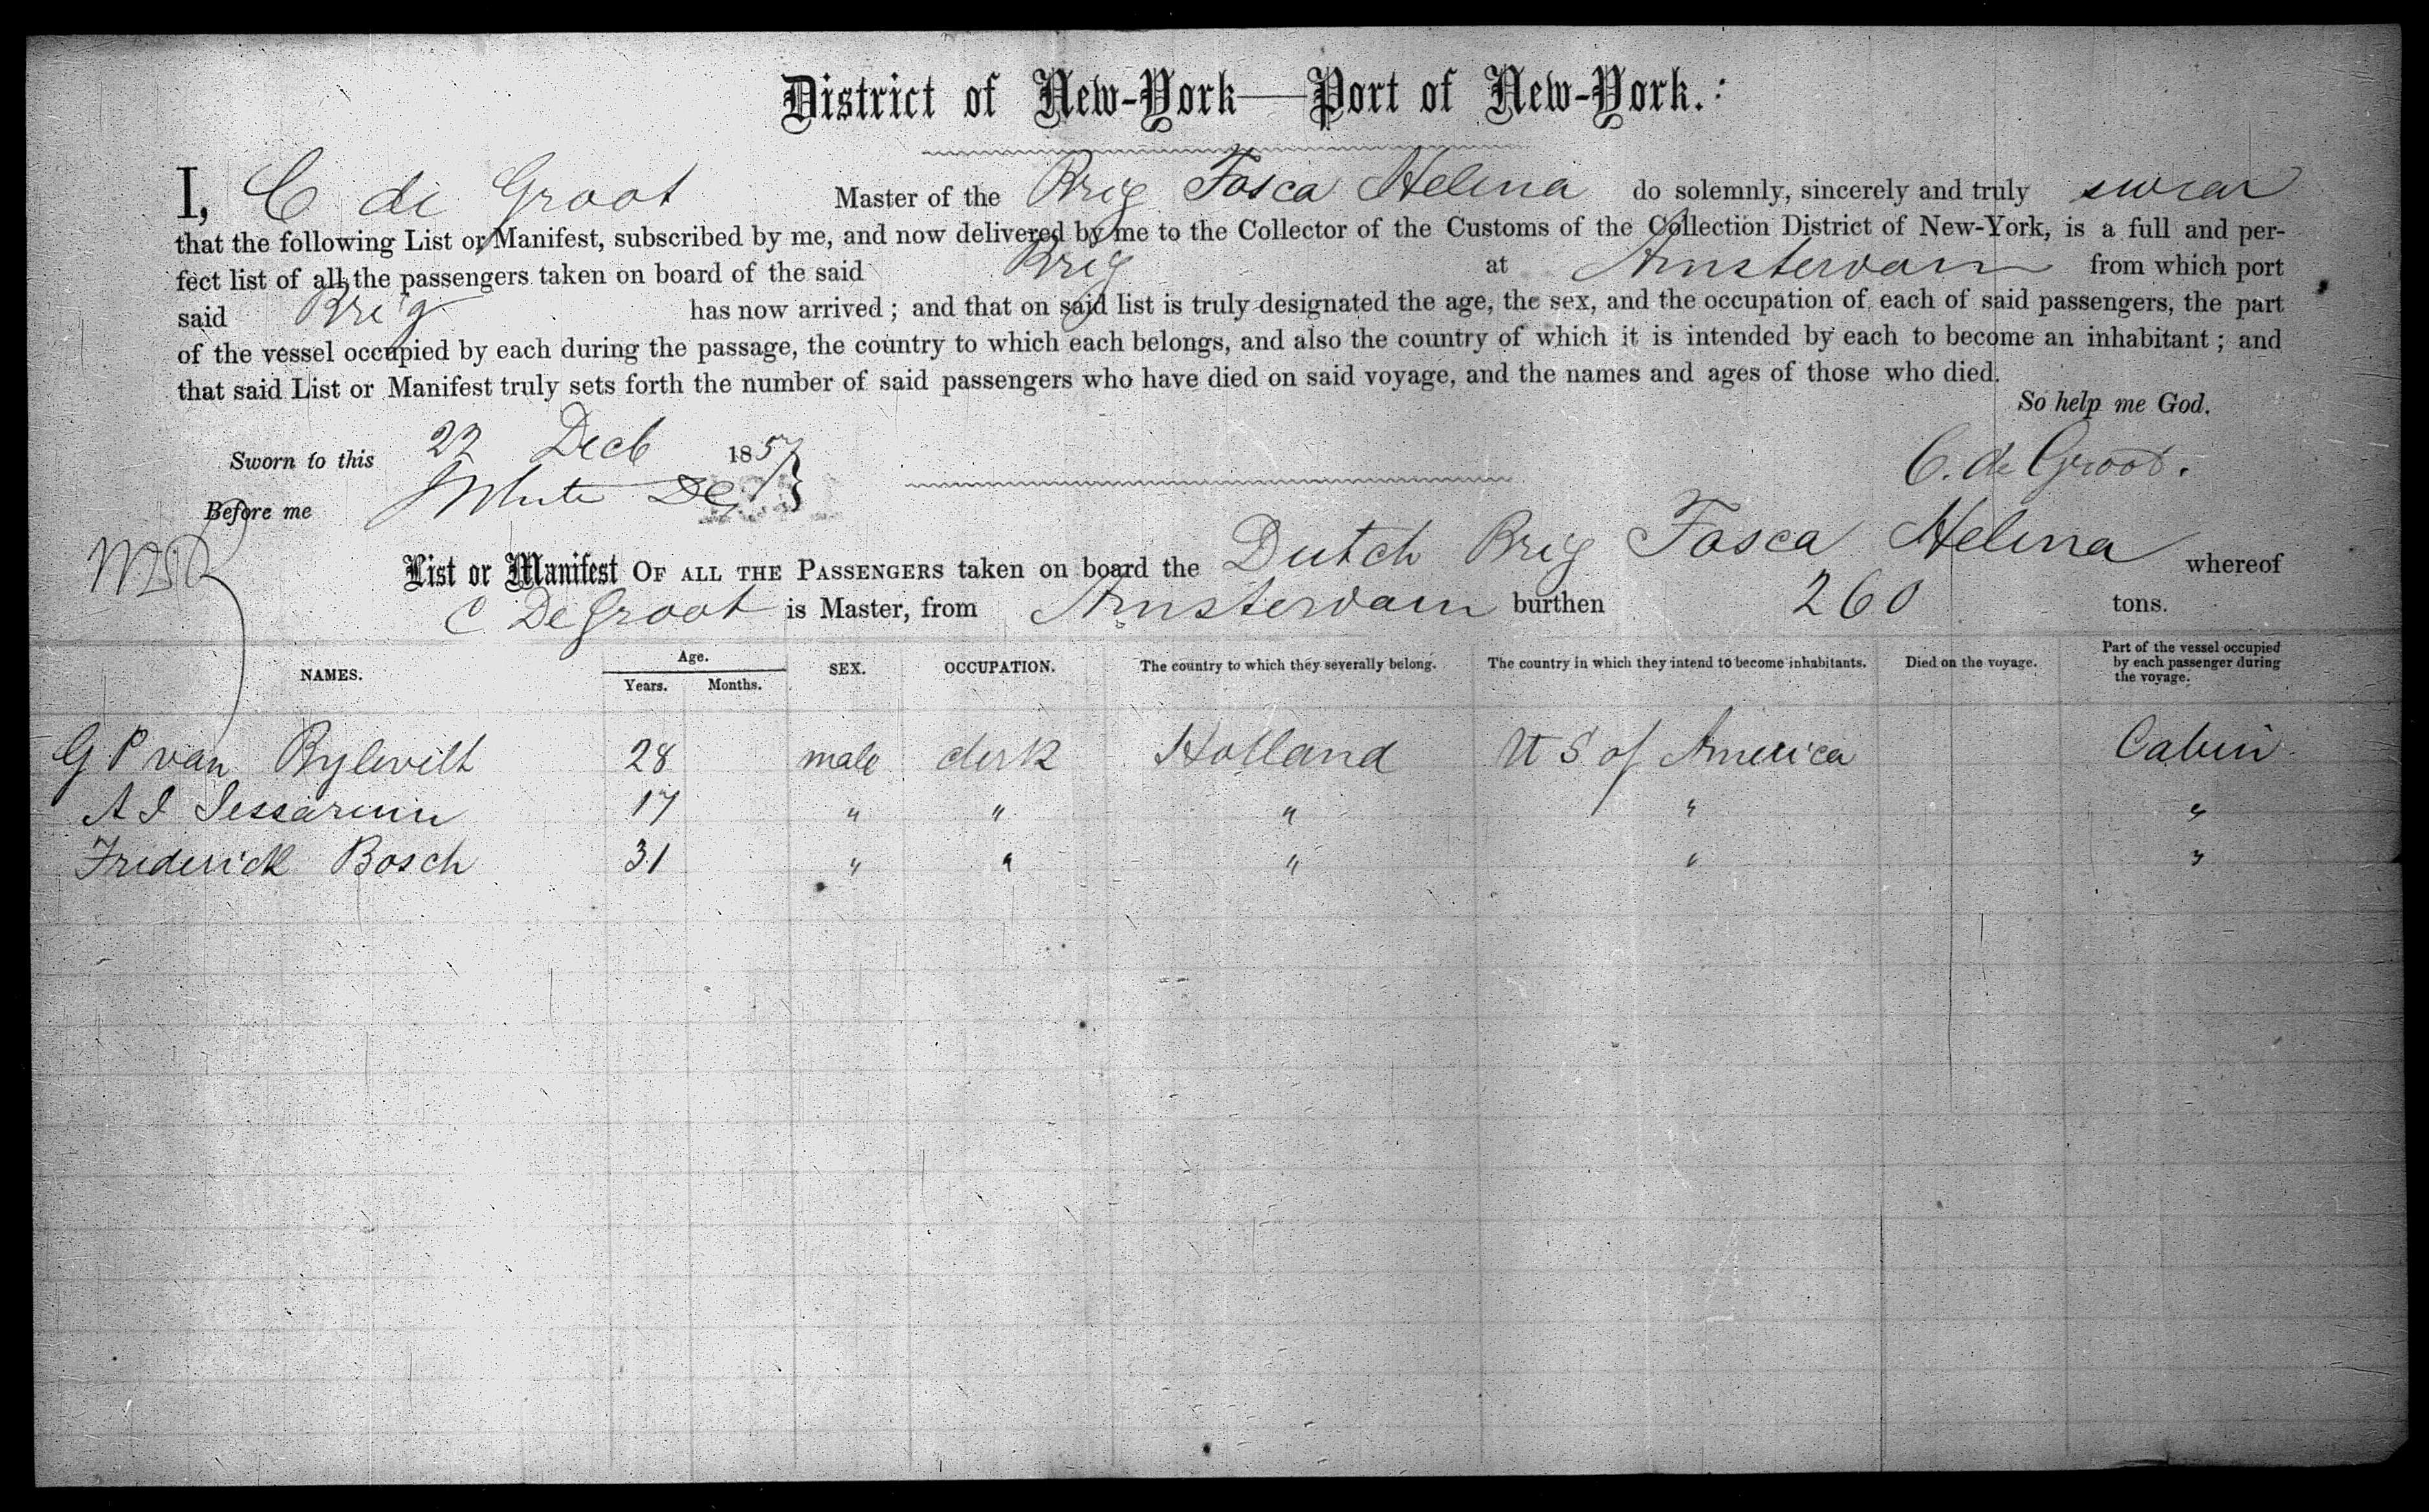 District of New-York—Port of New-York.
I, C de Groot Master of the Brig Fosca Helena do solemnly, sincerely and truly swear
that the following List or Manifest, subscribed by me, and now delivered by me to the Collector of the Customs of the Collection District of New-York, is a full and per-
fect list of all the passengers taken on board of the said Brig at Amsterdam from which port
said Brig has now arrived; and that on said list is truly designated the age, the sex, and the occupation of each of said passengers, the part
of the vessel occupied by each during the passage, the country to which each belongs, and also the country of which it is intended by each to become an inhabitant; and
that said List or Manifest truly sets forth the number of said passengers who have died on said voyage, and the names and ages of those who died.
So help me God.
Sworn to this 22 Decb 1857
C. de Groot.
Before me White DC
List or Manifest OF ALL THE PASSENGERS taken on board the Dutch Brig Fosca Helena whereof
C De Groot is Master, from Amsterdam burthen 260 tons.
NAMES. Age. Years. Months. SEX. OCCUPATION. The country to which they severally belong. The country in which they intend to become inhabitants. Died on the voyage. Part of the vessel occupied by each passenger during the voyage.
G P van Bylevilt 28 male clerk Holland U S of America Cabin
A I 17 " " " " "
Frederick Bosch 31 " " " " "